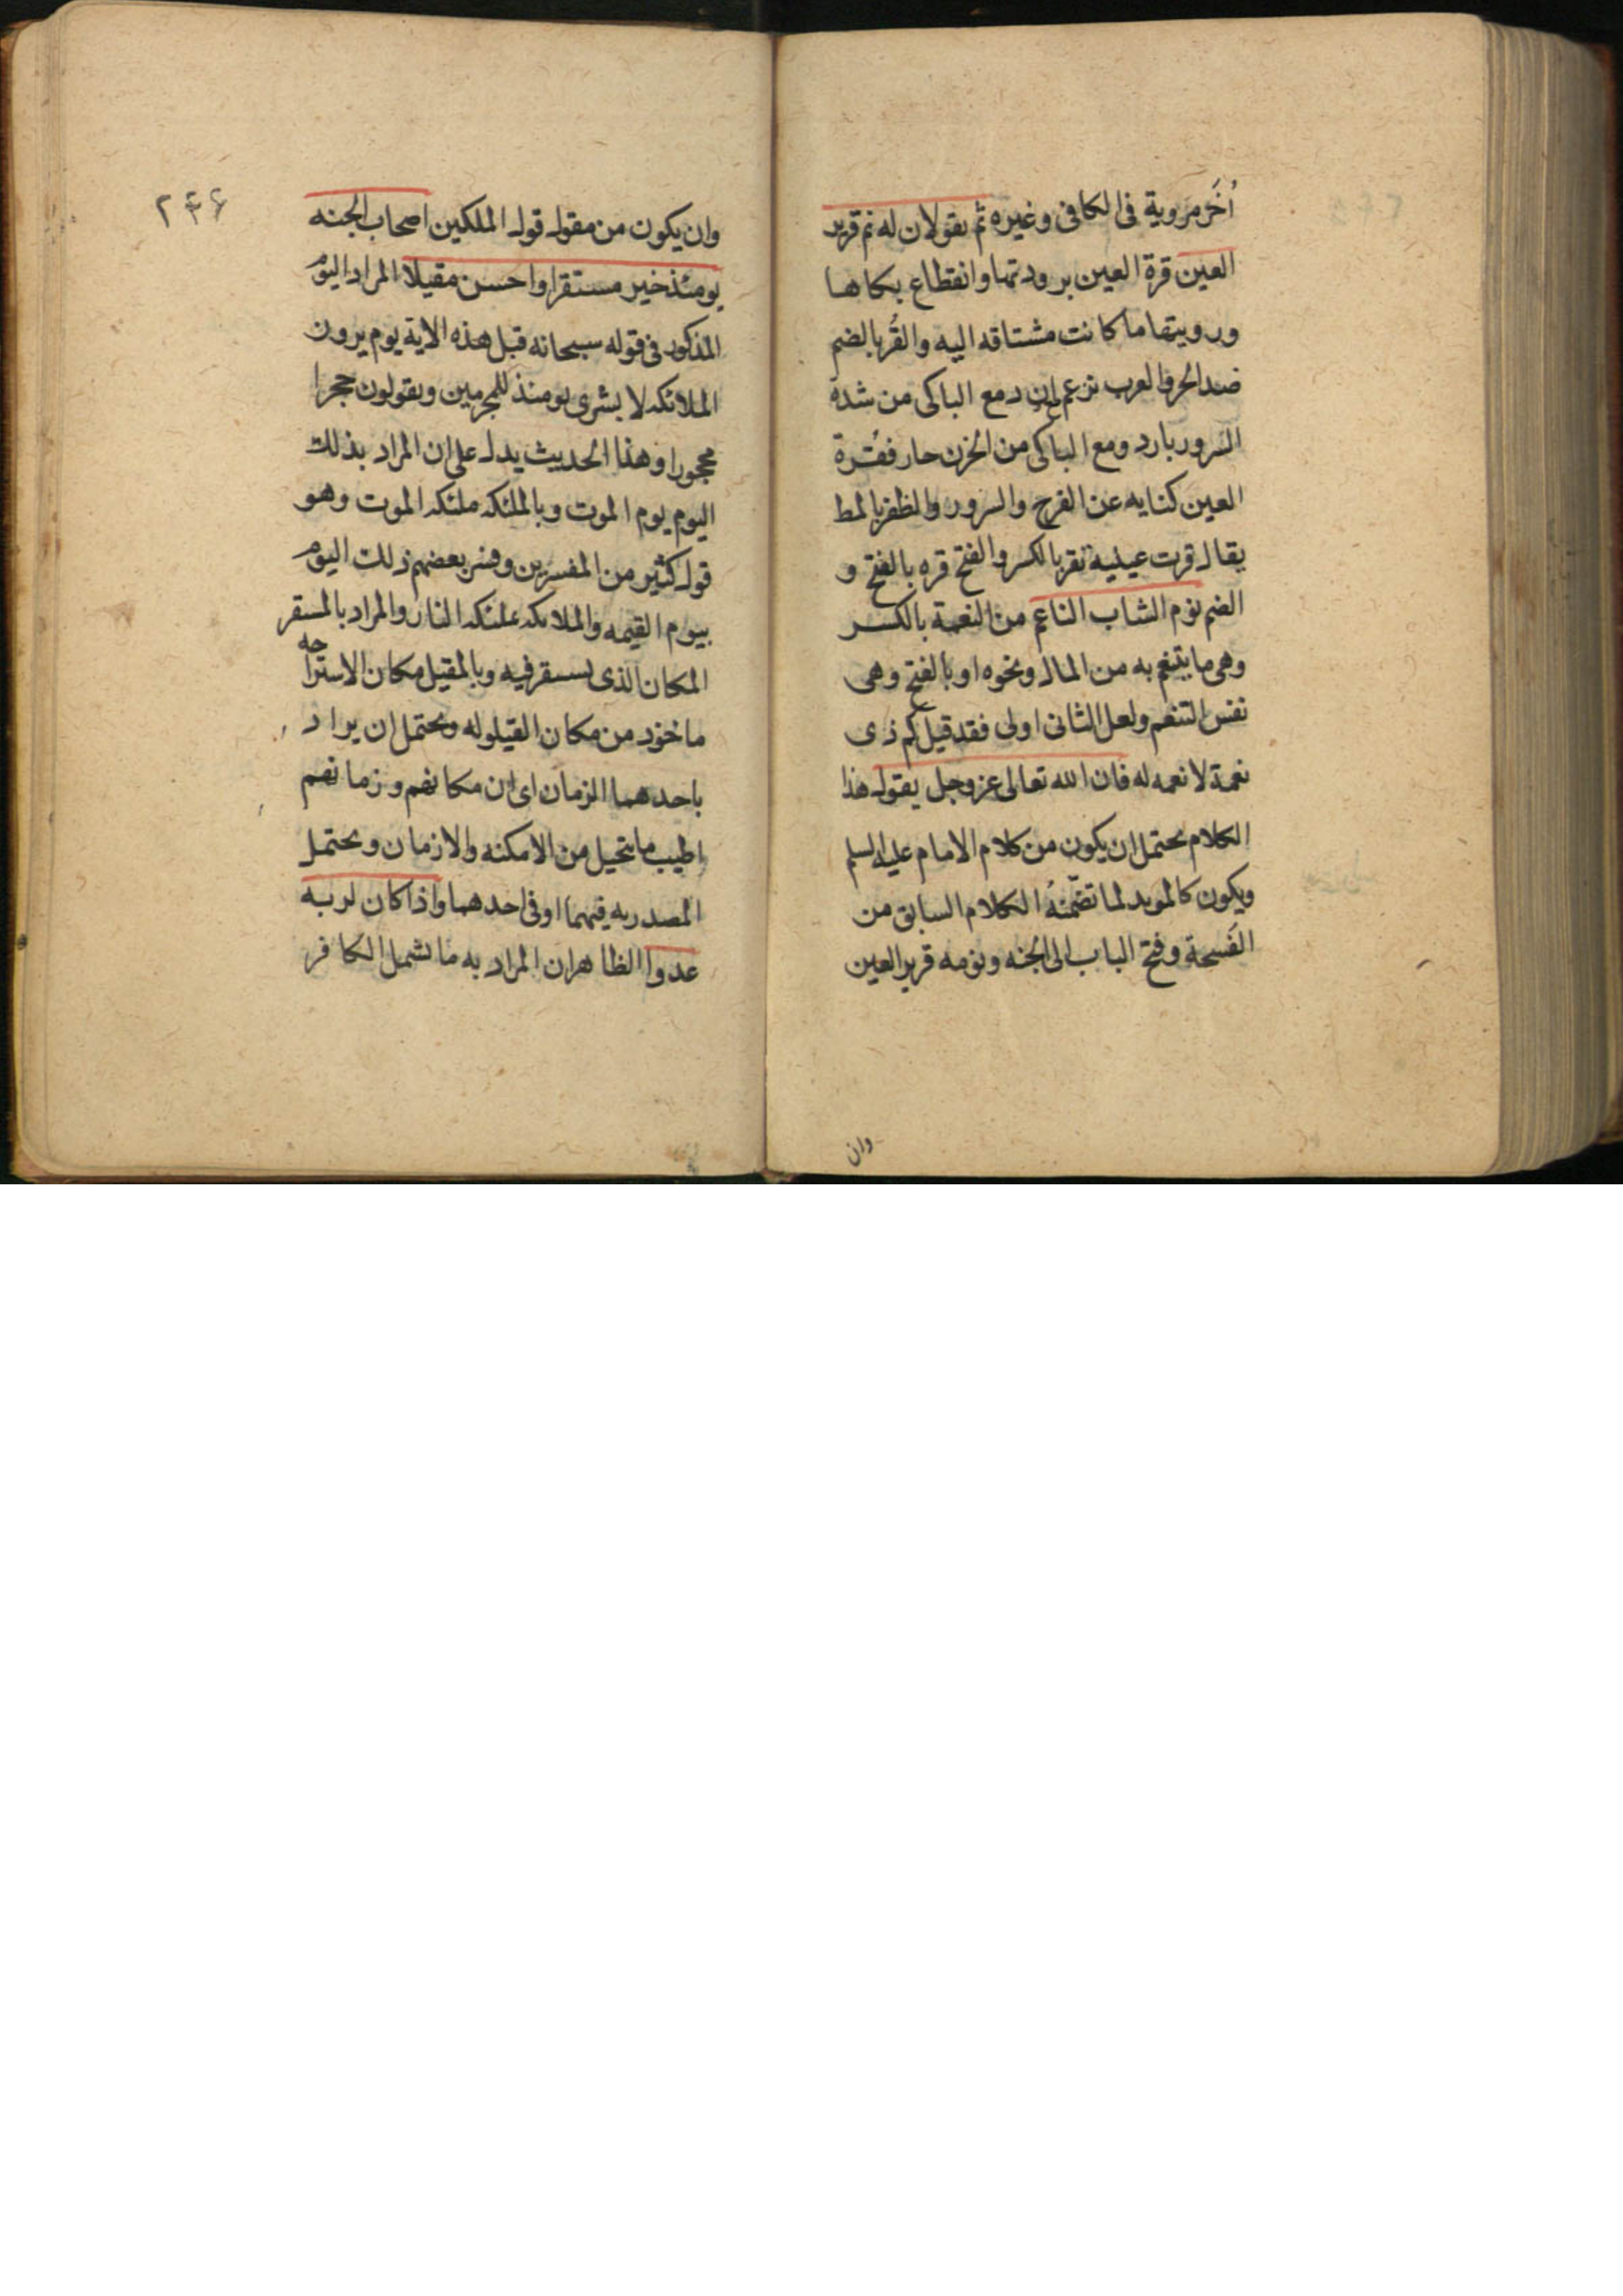 أُخَر مروية فى الكافى وغيره ثم يقولان له نم قرير
العين قرة العين برودتها وانقطاع بكاها
ورويتها ما كانت مشتاقه اليه والقُر بالضم
ضد الحر والعرب تزعم ان دمع الباكى من شدة
السرور بارد ودمع الباكى من الحزن حار فقرة
العين كنايه عن الفرح والسرور والظفر بالمط
يقال قرت عينه تقر بالكسر والفتح قره بالفتح و
الضم نوم الشاب الناعم من النعمة بالكسر
وهى ما يتنعم به من المال ونحوه او بالفتح وهى
نفس التنعم ولعل الثانى اولى فقد قيل كم ذى
نعمة لا نعمه له فان الله تعالى عز وجل يقول هذا
الكلام يحتمل ان يكون من كلام الامام عليه السلم
ويكون كالمويد لما تضمنهُ الكلام السابق من
الفسحة وفتح الباب الى الجنه ونومه قرير العين
وان
٢٤۶
وان يكون من مقول قول الملكين اصحاب الجنه
يومئذ خير مستقرا واحسن مقيلا المراد اليوم
المذكور فى قوله سبحانه قبل هذه الاية يوم يرون
الملائكه لا بشرى يومئذ للمجرمين ويقولون حجرا
محجورا وهذا الحديث يدل على ان المراد بذلك
اليوم يوم الموت وبالملئكه ملئكه الموت وهو
قول كثير من المفسرين وفسر بعضهم ذلك اليوم
بيوم القيمه والملائكه بملئكه النار والمراد بالمستقر
المكان الذى يستقر فيه وبالمقيل مكان الاستراحه
ماخوذ من مكان القيلوله ويحتمل ان يراد
باحدهما الزمان اى ان مكانهم وزمانهم
اطيب ما يتخيل من الامكنه والازمان ويحتمل
المصدريه فيهما او فى احدهما واذا كان لربه
عدوا الظاهر ان المراد به ما يشمل الكافر